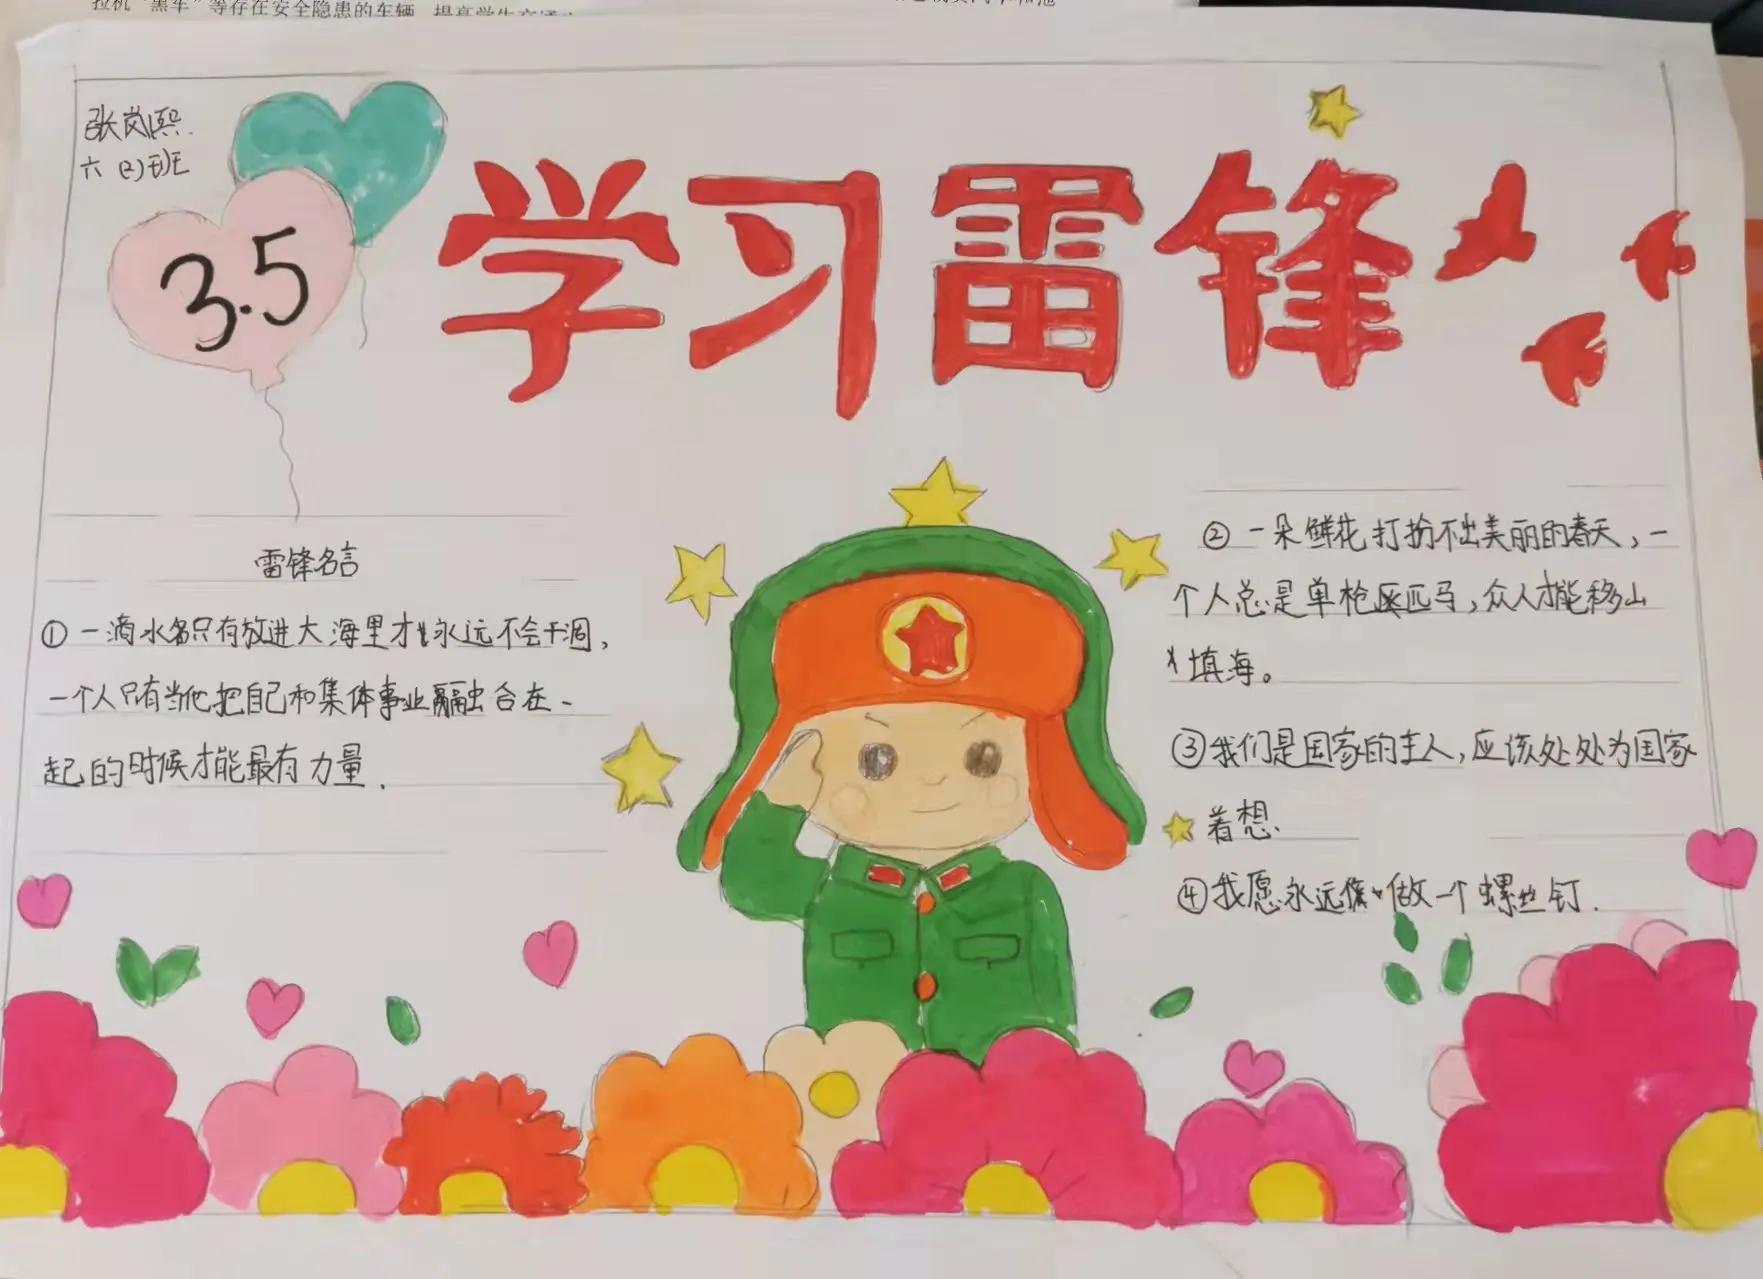 拉机“黑车”等存在安全隐患的车辆，提高学生交通
张岚熙.
六(2)班
3.5
学习雷锋
雷锋名言
①一滴水只有放进大海里才永远不会干涸，
一个人只有当他把自己和集体事业融合在一
起的时候才能最有力量.
②一朵鲜花打扮不出美丽的春天，一
个人总是单枪匹马，众人才能移山
填海。
③我们是国家的主人，应该处处为国家
着想.
④我愿永远做一个螺丝钉.